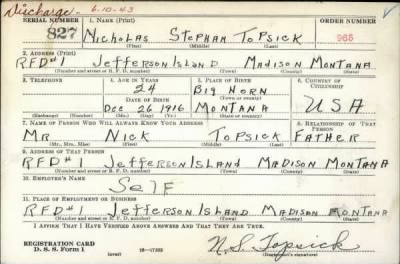 Discharge - 6-10-43
SERIAL NUMBER 1. NAME (Print) ORDER NUMBER
827 Nicholas Stephan Topsick 965
(First) (Middle) (Last)
2. ADDRESS (Print)
RFD#1 Jefferson Island Madison Montana
(Number and street or R. F. D. number) (Town) (County) (State)
3. TELEPHONE 4. AGE IN YEARS 5. PLACE OF BIRTH 6. COUNTRY OF CITIZENSHIP
24 Big Horn
DATE OF BIRTH (Town or county)
Dec 26 1916 Montana USA
(Exchange) (Number) (Mo.) (Day) (Yr.) (State or country)
7. NAME OF PERSON WHO WILL ALWAYS KNOW YOUR ADDRESS 8. RELATIONSHIP OF THAT PERSON
Mr Nick Topsick Father
(Mr., Mrs., Miss) (First) (Middle) (Last)
9. ADDRESS OF THAT PERSON
RFD#1 Jefferson Island Madison Montana
(Number and street or R. F. D. number) (Town) (County) (State)
10. EMPLOYER'S NAME
Self
11. PLACE OF EMPLOYMENT OR BUSINESS
RFD#1 Jefferson Island Madison Montana
(Number and street or R. F. D. number) (Town) (County) (State)
I AFFIRM THAT I HAVE VERIFIED ABOVE ANSWERS AND THAT THEY ARE TRUE.
REGISTRATION CARD
D. S. S. Form 1 (over) 16—17105 N. S. Topsick
(Registrant's signature)